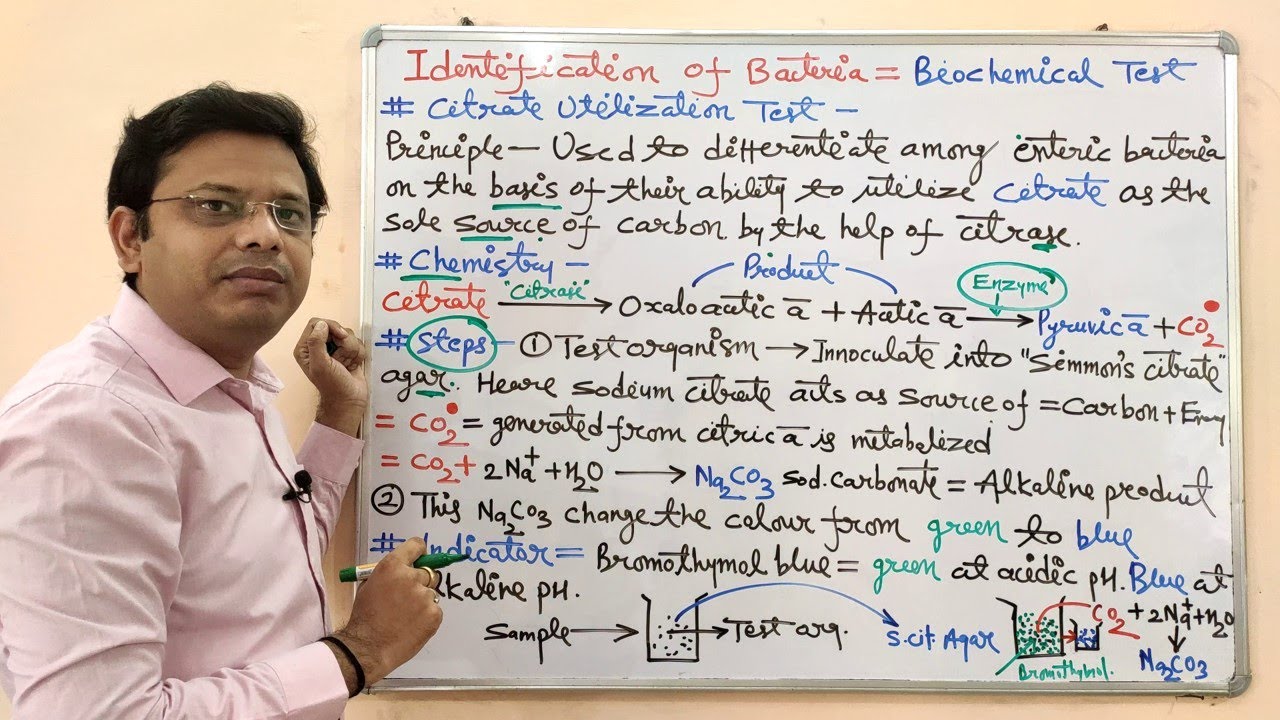 Identification of Bacteria = Biochemical Test
# Citrate Utilization Test -
Principle - Used to differentiate among enteric bacteria
on the basis of their ability to utilize Citrate as the
sole source of carbon by the help of citrase.
# Chemistry -
Product
Enzyme
Citrate "Citrase" → Oxaloacetic a + Acetic a → Pyruvic a + CO2
# Steps - ① Test organism → Innoculate into "Simmon's citrate"
agar. Heare sodium citrate acts as source of = Carbon + Energy
= CO2 = generated from citric a is metabolized
= CO2 + 2Na+ + H2O → Na2CO3 sod. carbonate = Alkaline product
② This Na2CO3 change the colour from green to blue
# Indicator = Bromothymol blue = green at acidic pH. Blue at
alkaline pH.
Sample → → Test org. S.cit Agar
CO2 + 2Na+ + H2O
↓
Na2CO3
Bromothymol.